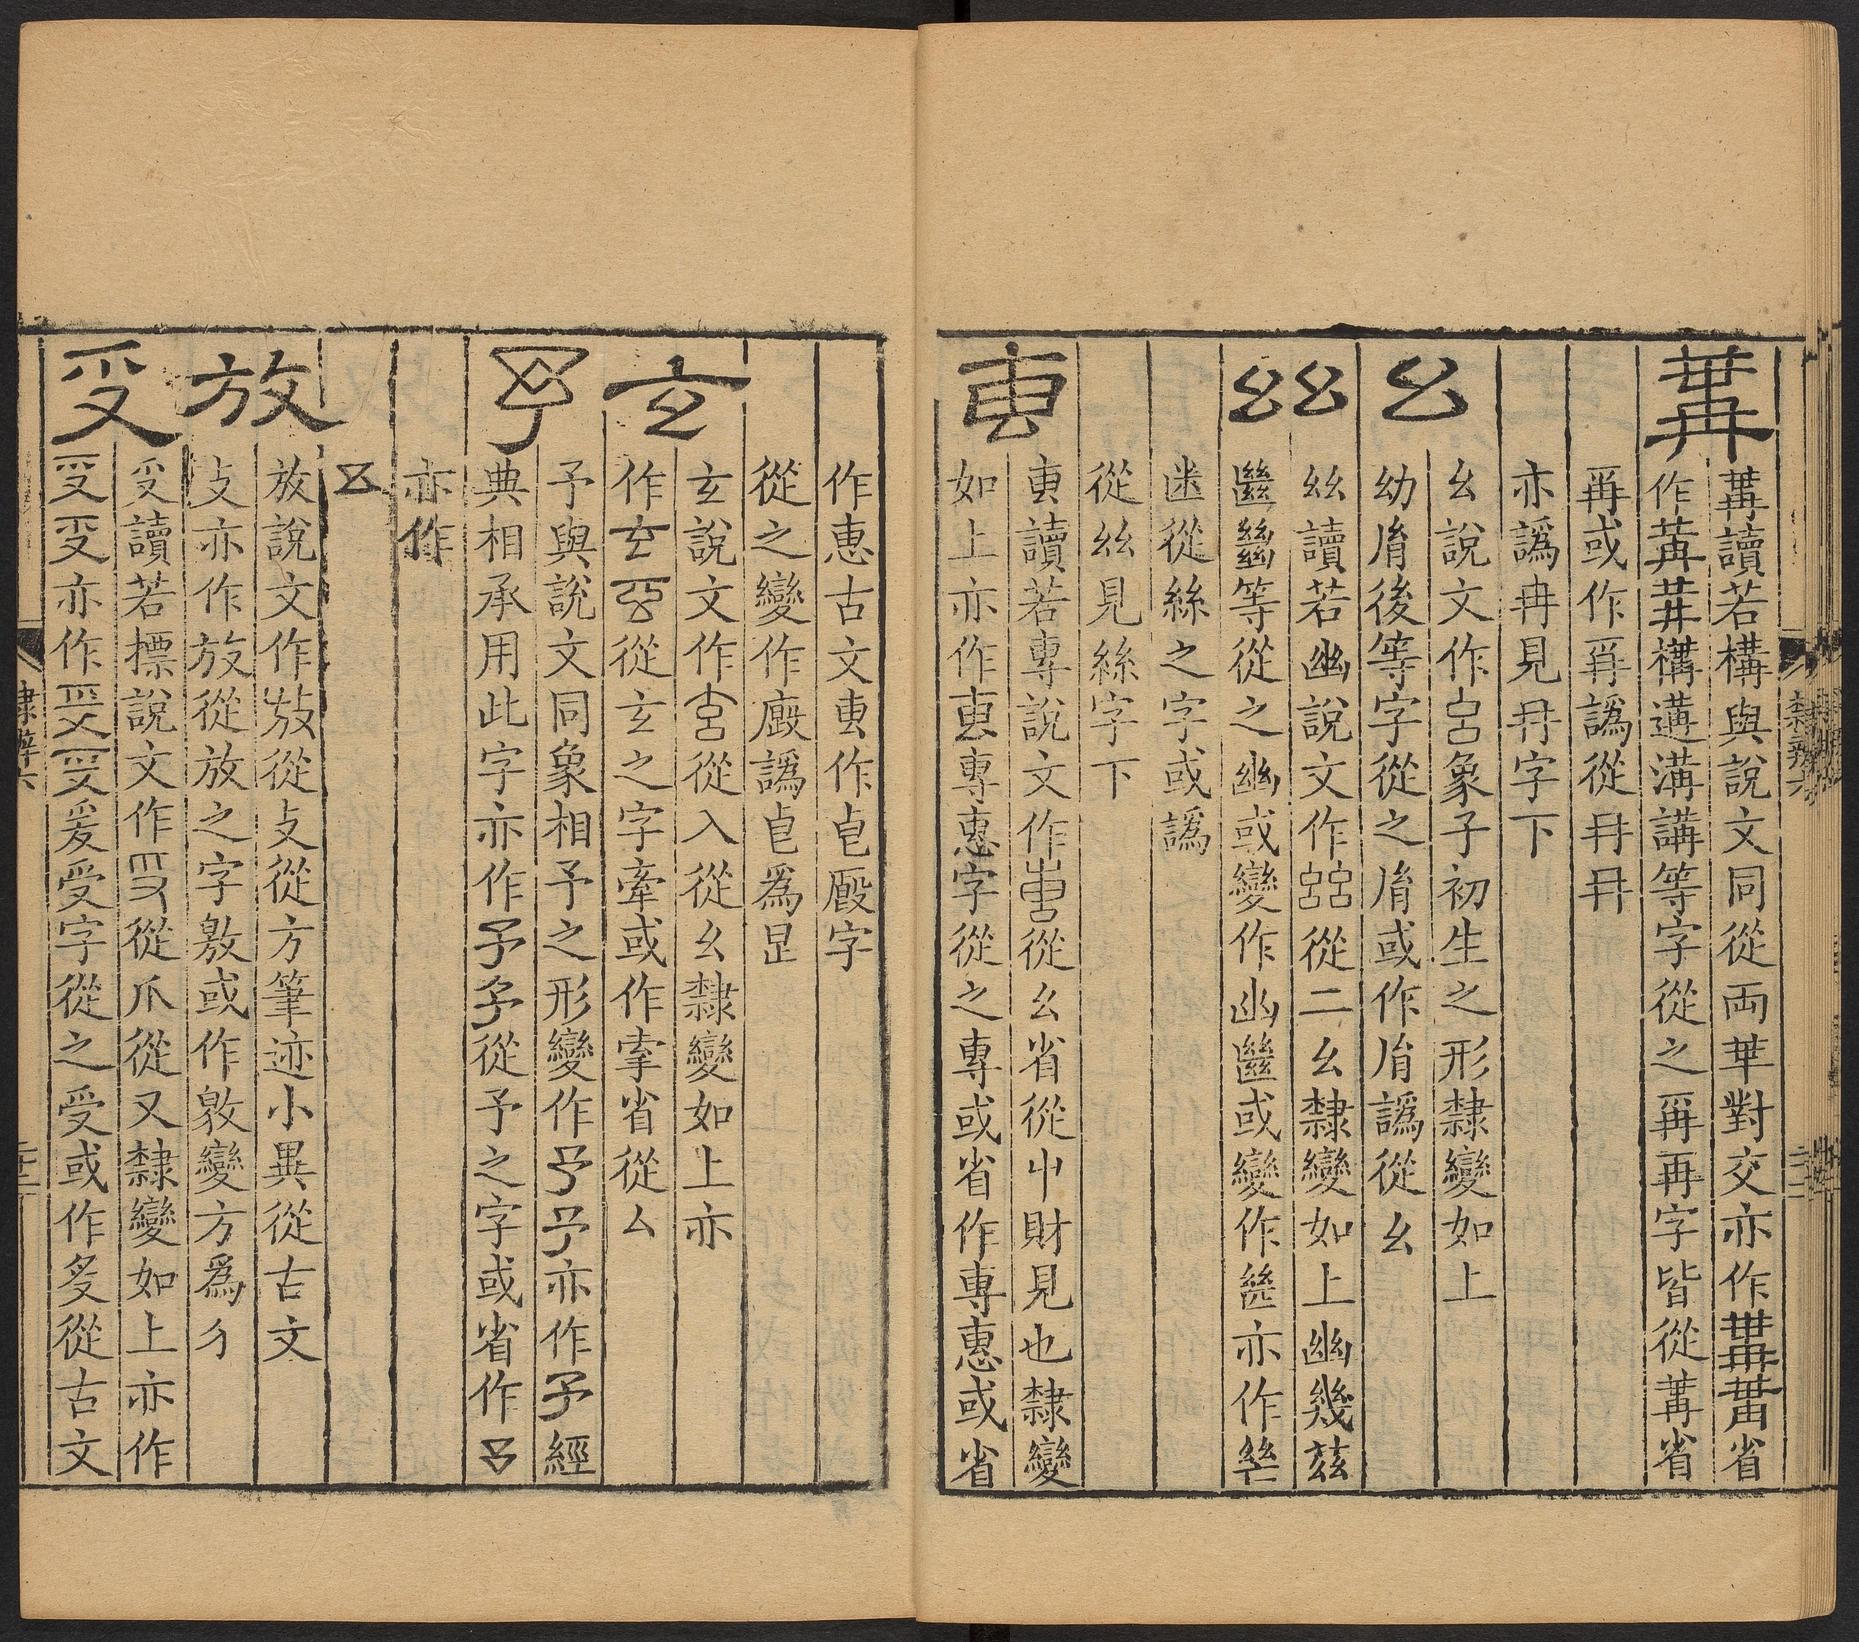 冓
冓讀若構與說文同從兩冓對交亦作省
作構遘溝講等字從之再再字皆從冓省
再或作再譌從冄冄
亦譌冉見冄字下
幺
幺說文作象子初生之形隸變如上
幼胤後等字從之胤或作譌從幺
𢆶
𢆶讀若幽說文作從二幺隸變如上幽幾茲
等從之幽或變作幽或變作亦作
從絲之字或譌
從𢆶見絲字下
叀
叀讀若專說文作從幺省從屮財見也隸變
如上亦作專惠字從之專或省作専惠或省
作恵古文叀作皀廄字
從之變作廄譌皀爲
玄
玄說文作從入從幺隸變如上亦
作從玄之字牽或作省從厶
予
予與說文同象相予之形變作亦作予經
典相承用此字亦作予從予之字或省作
亦作
放
放說文作從攴從方筆迹小異從古文
攴亦作放從放之字敫或作敫變方爲
𠬪
𠬪讀若摽說文作從爪從又隸變如上亦作
亦作爰受字從之受或作從古文
隸辨六
隸辨六